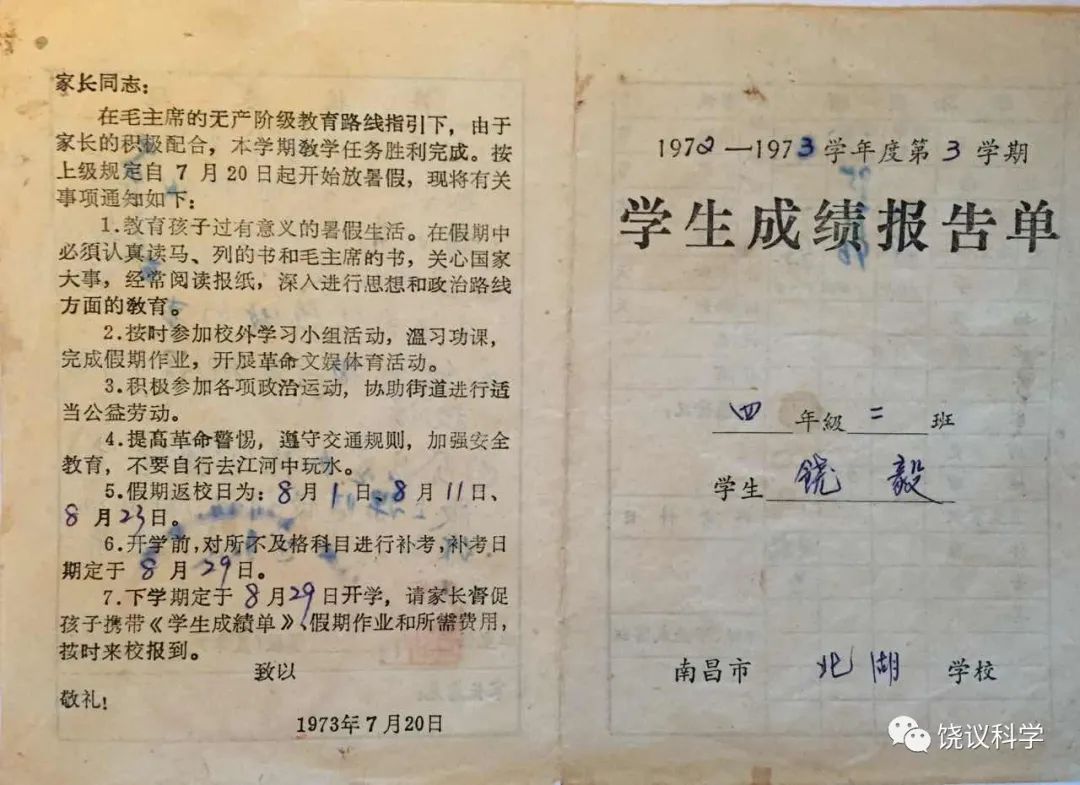 家长同志：
在毛主席的无产阶级教育路线指引下，由于
家长的积极配合，本学期教学任务胜利完成。按
上级规定自 7 月 20 日起开始放暑假，现将有关
事项通知如下：
1.教育孩子过有意义的暑假生活。在假期中
必須认真读马、列的书和毛主席的书，关心国家
大事，经常阅读报纸，深入进行思想和政治路线
方面的教育。
2.按时参加校外学习小组活动，溫习功课，
完成假期作业，开展革命文娱体育活动。
3.积极参加各项政治运动，协助街道进行适
当公益劳动。
4.提高革命警惕，遵守交通规则，加强安全
教育，不要自行去江河中玩水。
5.假期返校日为：8月1日、8月11日、
8月23日。
6.开学前，对所不及格科目进行补考，补考日
期定于8月29日。
7.下学期定于8月29日开学，请家长督促
孩子携带《学生成績单》、假期作业和所需费用，
按时来校报到。
致以
敬礼！
1973年7月20日
1972—1973学年度第3学期
学生成绩报告单
四年級二班
学生饶毅
南昌市北湖学校
饶议科学